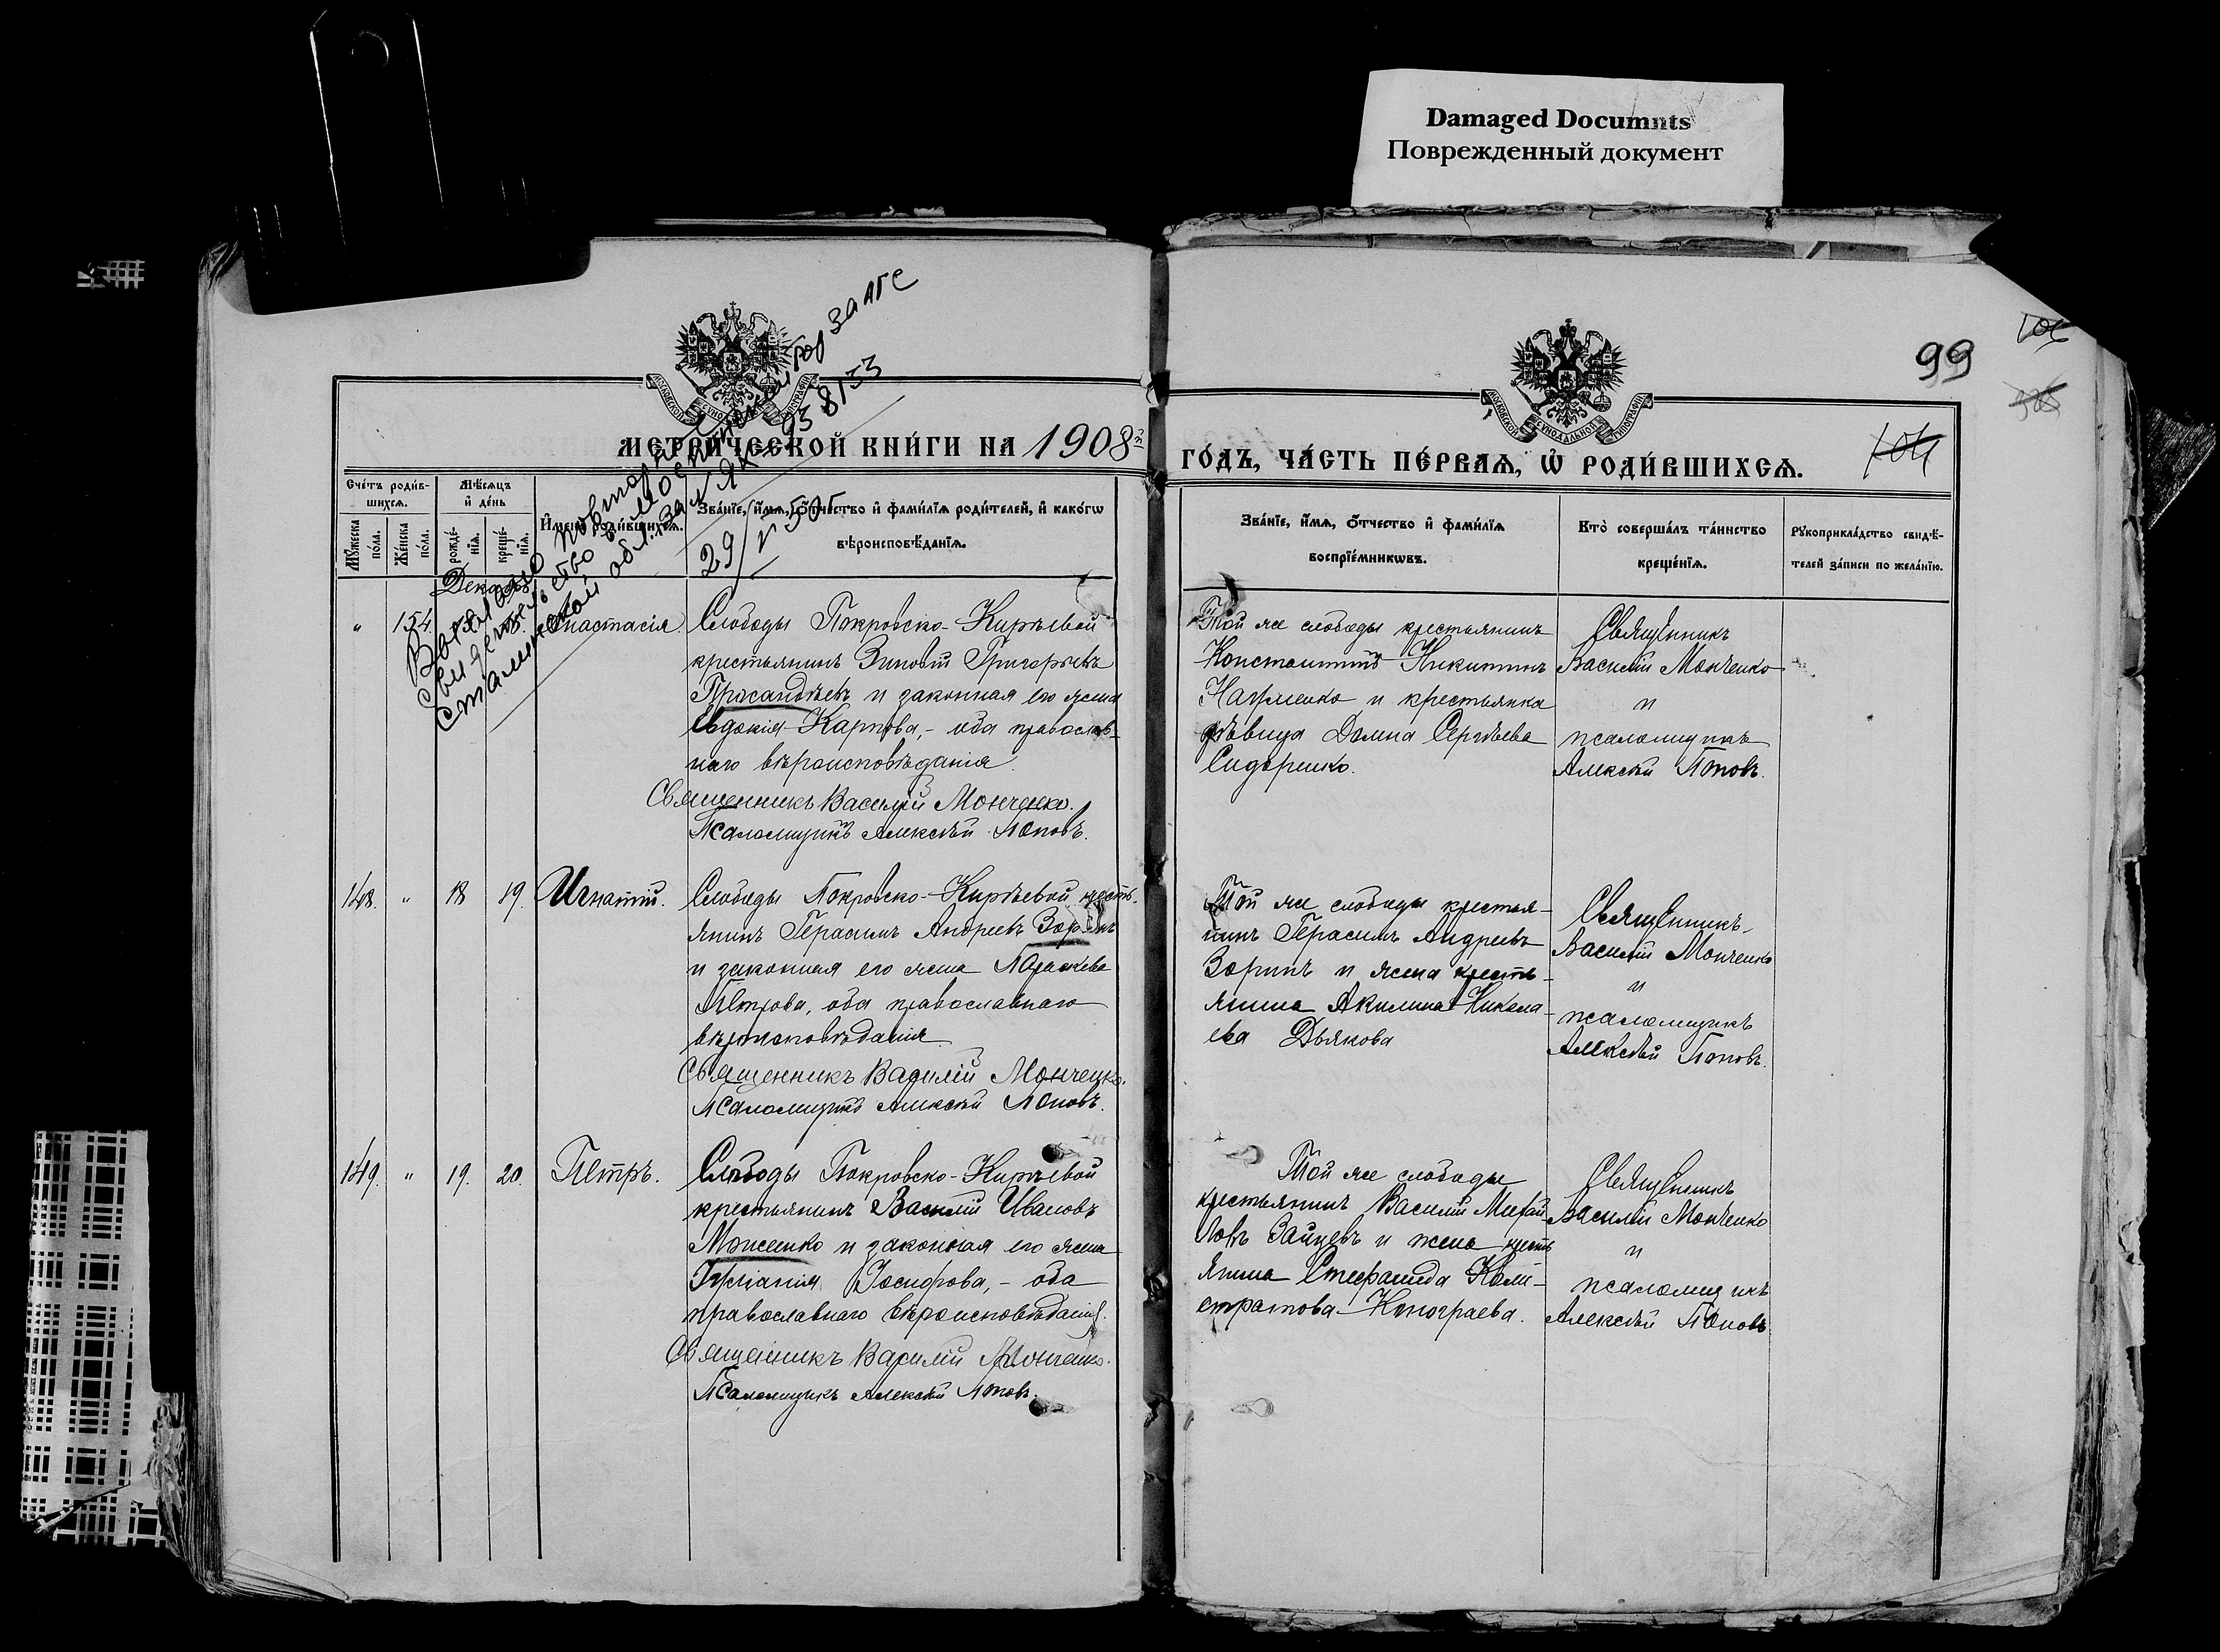 Damaged Documnts
Поврежденный документ
99
МЕТРИЧЕСКОЙ КНИГИ НА 1908й
ГОДЪ, ЧАСТЬ ПЕРВАЯ, Ѡ РОДИВШИХСЯ.
104
Счетъ родив-
шихся.
Мѣсяцъ
и день
Мужеска
пола.
Женска
пола.
рожде-
нія.
креще-
нія.
Имена родившихся.
Званіе, имя, отчество и фамилія родителей, и какогѡ
вѣроисповѣданія.
Званіе, имя, отчество и фамилія
воспріемникѡвъ.
Кто совершалъ таинство
крещенія.
Рукоприкладство свидѣ-
телей записи по желанію.
Выдано повторное
свидетельство
Сталинской обл. за № ЯК 938153
29/V 50г
гор ЗАГС
Декабрь
" 154. Анастасія.
Слободы Покровско-Кирѣевой
крестьянинъ Зиновій Григорьевъ
и законная его жена
Евдокія Карпова, - оба православ-
наго вѣроисповѣданія.
Священникъ Василій Монченко.
Псаломщикъ Алексѣй Поповъ.
Той же слободы крестьянинъ
Константинъ Никитинъ
Науменко и крестьянка
дѣвица Домна Сергѣева
Сидоренко.
Священникъ
Василій Монченко
и
псаломщикъ
Алексѣй Поповъ.
148. " 18 19. Игнатій.
Слободы Покровско-Кирѣевой кресть-
янинъ Герасимъ Андреевъ Зоринъ
и законная его жена Параскева
Петрова, оба православнаго
вѣроисповѣданія.
Священникъ Василій Монченко.
Псаломщикъ Алексѣй Поповъ.
Той же слободы крестья-
нинъ Герасимъ Андреевъ
Зоринъ и жена кресть-
янина Акилина Никола-
ева Дьякова
Священникъ
Василій Монченко
и
псаломщикъ
Алексѣй Поповъ.
149. " 19. 20. Петръ.
Слободы Покровско-Кирѣевой
крестьянинъ Василій Ивановъ
и законная его жена
Іосифова, - оба
православнаго вѣроисповѣданія.
Священникъ Василій Монченко.
Псаломщикъ Алексѣй Поповъ.
Той же слободы
крестьянинъ Василій Михай-
ловъ Зайцевъ и жена кресть
янина Стефанида Кали-
стратова
Священникъ
Василій Монченко
и
псаломщикъ
Алексѣй Поповъ.